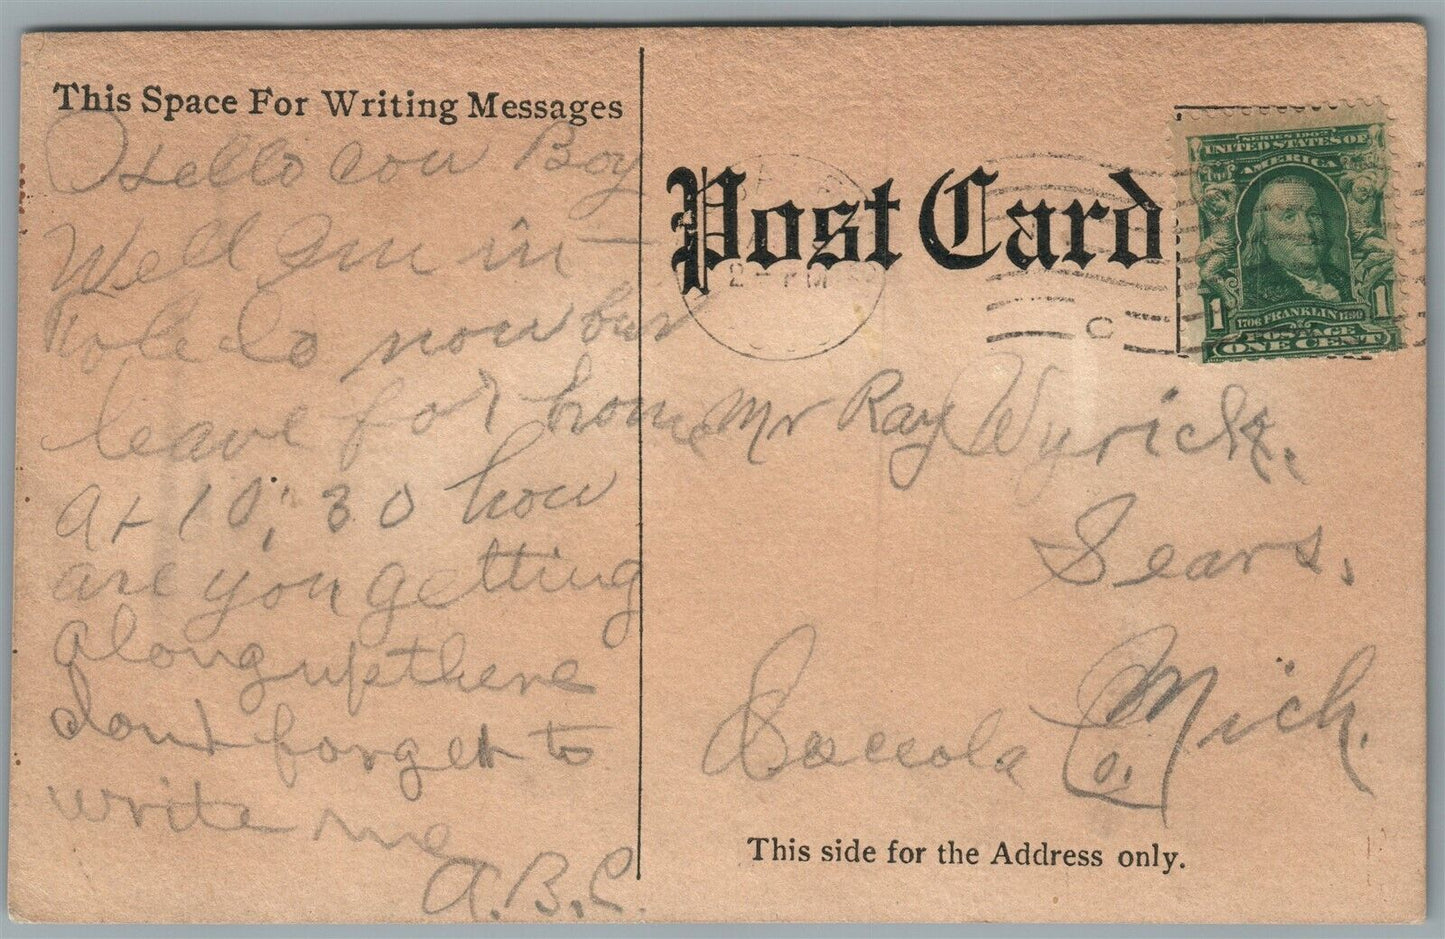 This Space For Writing Messages
Hello cow Boy
Well I'm in
Toledo now but
leave for home
at 10;30 how
are you getting
along up there
dont forget to
write me
A.B.C.
Post Card
2- PM
C
SERIES 1902
UNITED STATES OF
AMERICA
1 1
1706 FRANKLIN 1790
POSTAGE
ONE CENT
Mr Ray Wyrick.
Sears.
Osceola Co. Mich.
This side for the Address only.